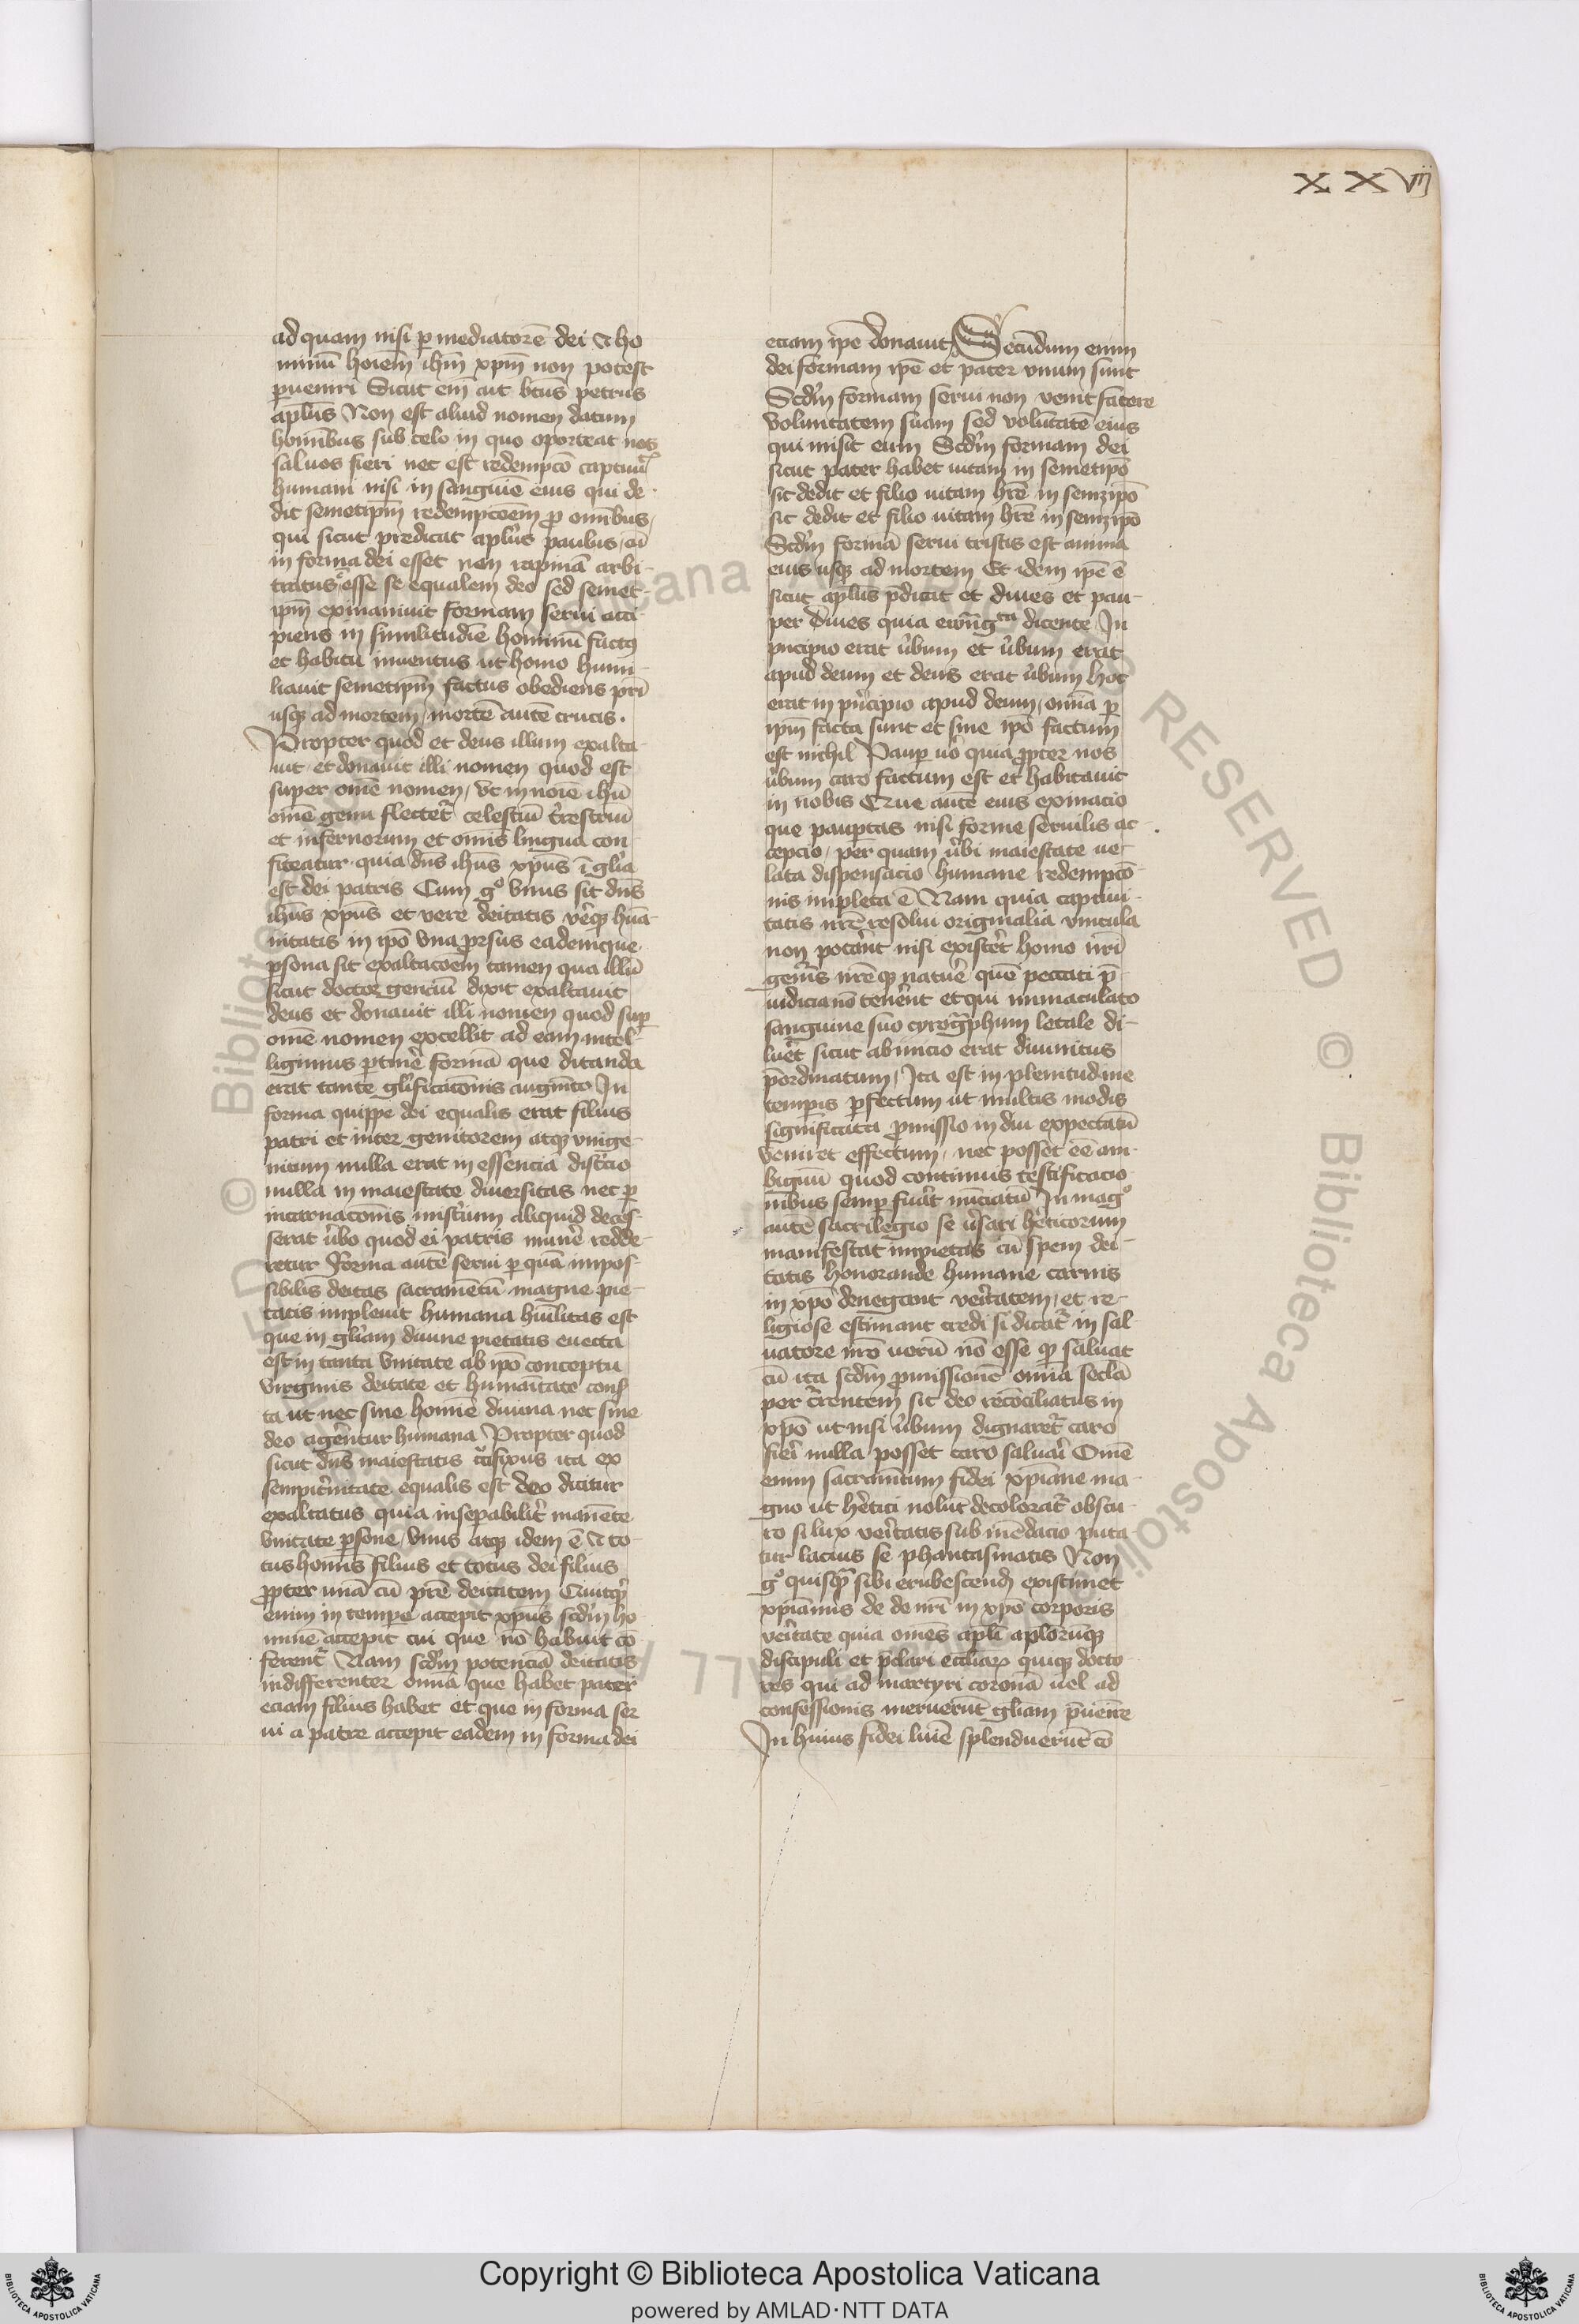 XXVIIJ
ad quam nisi ꝑ mediatorē dei ⁊ ho
minū hoīem ihm̄ xpm̄ non potest
ꝑuenirı Sicut em̄ ait bt̄us petrus
apl̄us Non est aliud nomen datum
homībus sub celo in quo oporteat nos
saluos fieri nec est redempcō captiui͛
humani nisi in sanguīe eius qui de-
dit semetipm̄ redempcoēm ꝓ omībus
qui sicut predicat apl̄us paulus cū
in forma dei esset non rapinā arbi-
tratus esse se equalem deo sed semet-
ipm̄ exinaniuit formam serui acci-
piens in similitudīe hominū factꝰ
et habitu inuentus ut homo humi-
liauit semetipm̄ factus obediens pr̄i
usqꝫ ad mortem mortē autē crucis.
Propter quod et deus illum exalta-
uit et donauit illi nomen quod est
super omē nomen, vt in noīe ihū
omē genu flectet᷑ celestiū t̓restriū
et infernorum et omīs lingua con-
fiteatur quia dn̄s ihūs xp̄us ī gl̓ia
est dei patris Cum gͦ vnus sit dn̄s
ihūs xp̄us et vere deitatis ve̓qꝫ huā-
nitatis in ip̄o vna ꝓrsus eademque
ꝑsona sit exaltacoēm tamen qua illū
sicut doctor genciū dixit exaltauit
deus et donauit illi nomen quod suꝑ
omē nomen excellit ad eam intel-
ligimus ꝑtine̓ formā que ditanda
erat tante gl̓ificacōnis augm̄to In
forma quippe dei equalis erat filius
patri et inter genitorem atqꝫ vnige-
nitum nulla erat in essencia dist̓cio
nulla in maiestate diuersitas nec ꝑ
incarnaconis mist̓ium aliquid deces-
serat u̓bo quod ei patris mune̓ redde-
retur Forma autē serui ꝑ quā impas-
sibilis deitas sacramētū magne pie-
tatis impleuit humana hūilitas est
que in gl̓iam diuine pietatis euecta
est in tanta vnitate ab ip̄o conceptu
virginis deitate et humaītate cons̓-
ta ut nec sine homīe diuina nec sine
deo age̓ntur humana Propter quod
sicut dn̄s maiestatis c̓cifixus ita ex
sempit̓nitate equalis est deo dicitur
exaltatus quia insepabilit̓ manēte
vnitate ꝑsone vnus atqꝫ idem ē ⁊ to-
tus homīs filius et totus dei filius
ꝓpter unā cū pr̄e deitatem Quitqͥd
enim in tempe accepit xp̄us scd̓m ho-
minē accepit cui que nō habuit cō-
ferent᷑ Nam scd̓m potenciā deitatis
indifferenter omīa que habet pater
eciam filius habet et que in forma ser
ui a patre accepit eadem in forma dei
eciam ip̄e donauit Secūdum enim
dei formam ip̄e et pater vnum sunt
Scd̓m formam serui non venit facere
voluntatem suam sed volūtatē eius
qui misit eum Scd̓m formam dei
sicut pater habet uitam in semetip̄o
sic dedit et filio uitam hr̄e in semꝫip̄o
sic dedit et filio uitam hr̄e in semꝫip̄o
Scd̓m formā serui tristis est anima
eius usqꝫ ad mortem Et idem ip̄e ē
sicut apl̄us p̄dicat et diues et pau-
per Diues quia ewāgᵗᵃ dicente In
pͥncipio erat u̓bum et u̓bum erat
apud deum et deus erat u̓bum hoc
erat in pͥncipio apud deum, omīa ꝑ
ip̄m facta sunt et sine ip̄o factum
est nichil Pauꝑ uo̓ quia ꝓpter nos
u̓bum caro factum est et habitauit
in nobis Que autē eius exinacio
que paupertas nisi forme seruilis ac-
cepcio, per quam u̓bi maiestate ue-
lata dispensacio humane redempcō-
nis impleta ē Nam quia captiui-
tatis nr̄e resolui originalia vincula
non pote̓nt nisi existe̓t homo nr̄i
gene̓is nr̄eqꝫ natu̓e quē peccati p̄-
iudicia nō tene̓nt et qui immaculato
sanguine suo cyrogͣphum letale di-
lue̓t sicut ab inicio erat diuinitus
p̄ordinatum, Ita est in plenitudine
temꝑis ꝑfectum ut multis modis
significata ꝓmissio in diu expectatū
veniret effectum, nec posset eē am-
biguū quod continuis testificacio-
nībus semꝑ fua̓t nūciatū In magͦ
autē sacrilegio se u̓sari he̓ticorum
manifestat impietas cū spem dei-
tatis honorande humane carnis
in xp̄o denegant ve̓itatem, et re-
ligiose estimant credi si dicat᷑ in sal-
uatore nr̄o uerū nō esse qꝫ saluat
cū ita scd̓m ꝓmissionē omīa secl̄a
per c̓rentem sit deo reconciliatus in
xp̄o ut nisi u̓bum dignaret᷑ caro
fie̓i nulla posset caro salua̓i Omē
enim sacram̄tum fidei xp̄iane ma-
gno ut he̓tici nolūt decolorat᷑ obscu-
ro si lux ve̓itatis sub mēdacio puta-
tur lacius se phantasmatis Non
gͦ quisqͣ sibi erubescend̄ existimet
xp̄ianus de de nr̄i in xp̄o corporis
ve̓itate quia omēs apl̄i apl̄orūqꝫ
discipuli et p̄clari eccl̄iaꝝ quiqꝫ docto-
res qui ad martyri coronā uel ad
confessionis meruerūt gl̄iam ꝑueīre
In huius fidei luīe splenduerūt cō
Copyright © Biblioteca Apostolica Vaticana
powered by AMLAD·NTT DATA